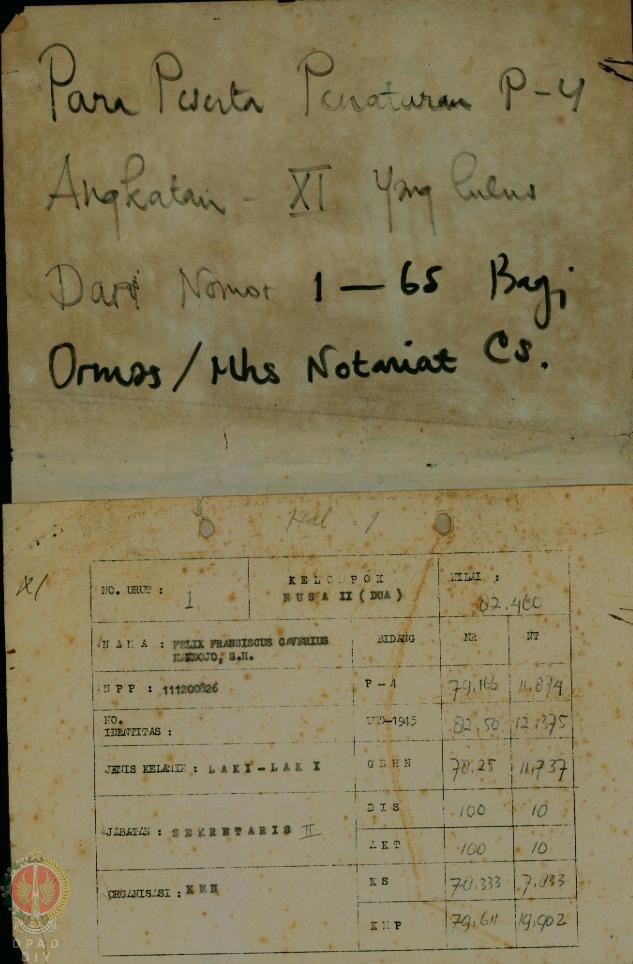 Para Peserta Penataran P-4
Angkatan - XI Yang lulus
Dari Nomor 1 — 65 Bagi
Ormas / Mhs Notariat Cs.
Hal : 1
XI
NO. URUT : 1
KELOMPOK
NUSA II (DUA)
NILAI :
82.460
NAMA : FELIX FRANSISCUS CAVERIUS
HANDOJO, S.H.
BIDANG NR NT
NPP : 111200826
P-4 79,166 11,874
NO.
IDENTITAS :
UUD-1945 82,50 12,375
JENIS KELAMIN : LAKI-LAKI
GBHN 78,25 11,737
JABATAN : SEKRETARIS II
DIS 100 10
AKT 100 10
ORGANISASI :
KS 78,333 7,833
KMP 79,611 19,902
DPAD
DIY